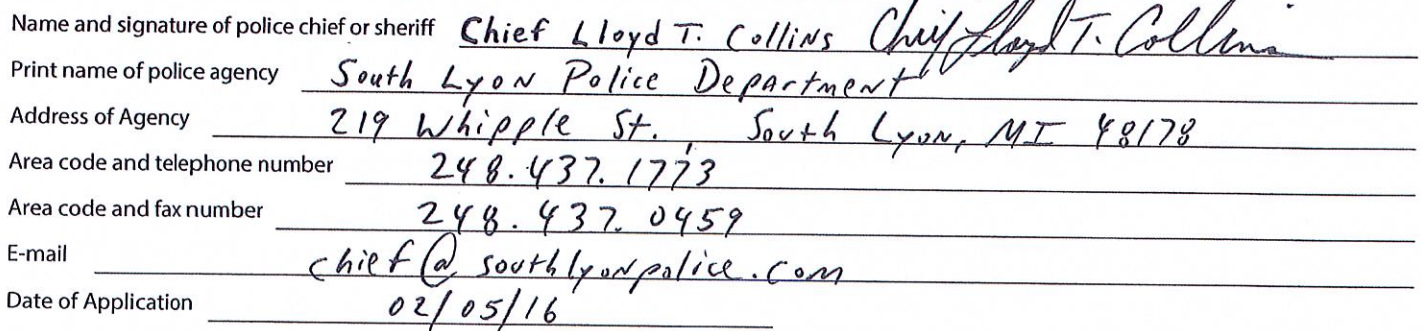 Name and signature of police chief or sheriff Chief Lloyd T. Collins Chief Lloyd T. Collins
Print name of police agency South Lyon Police Department
Address of Agency 219 Whipple St. South Lyon, MI 48178
Area code and telephone number 248.437.1773
Area code and fax number 248.437.0459
E-mail chief@southlyonpolice.com
Date of Application 02/05/16